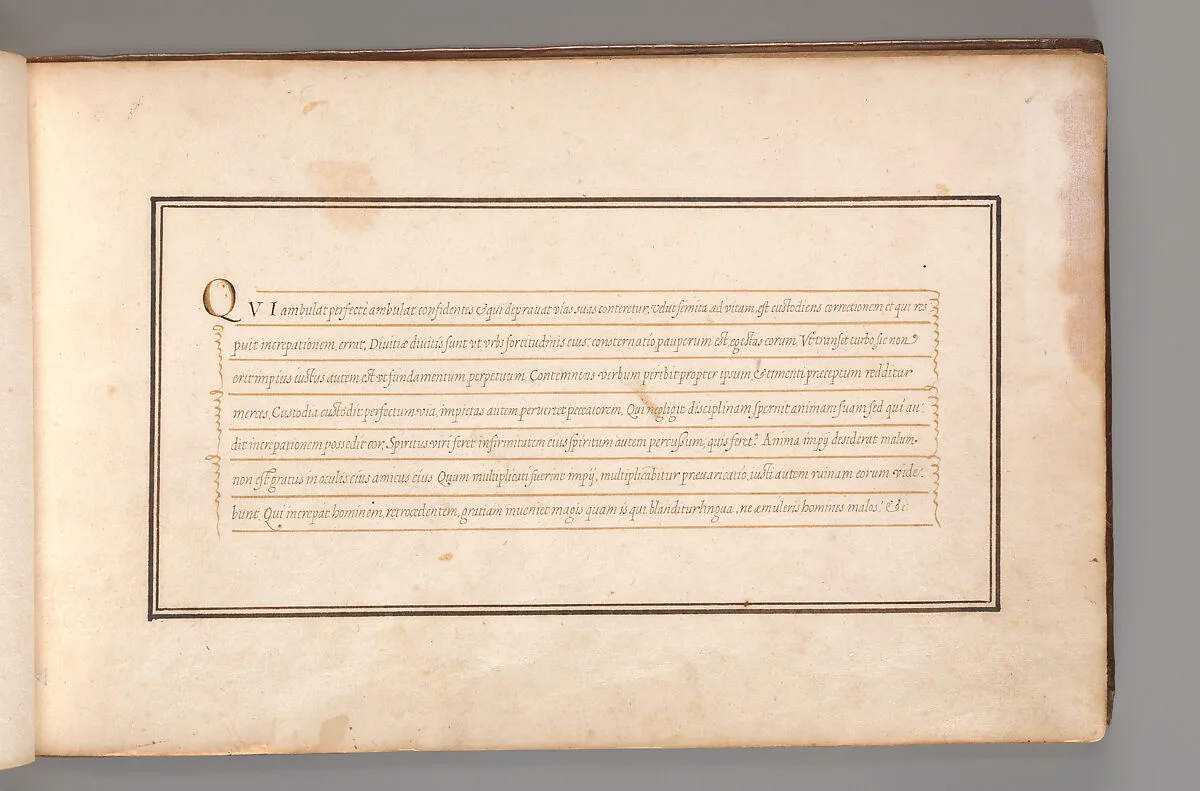 QVI ambulat perfectè ambulat confidentes & qui depravat vias suas conteretur, velut semita ad vitam, est custodiens correctionem et qui res
puit increpationem, errat, Divitiæ divitis sunt vt vrbs fortitudinis eius: consternatio pauperum est, egestas eorum. Vt transit turbo sic non
erit impius iustus autem est vt fundamentum, perpetuum, Contemnens verbum peribit propter ipsum, & timenti præceptum redditur
merces, Custodia custodit perfectum via, impietas autem pervertet peccatorem, Qui negligit disciplinam spernit animam suam sed qui au:
dit increpationem possedit cor, Spiritus viri feret infirmitatem eius spiritum autem percussum, quis feret? Anima impij desiderat malum
non est gratus in oculis eius amicus eius Quum multiplicati fuerint impij, multiplicabitur prævaricatio, iusti autem ruinam eorum vide:
bunt, Qui increpat hominem, retrocedentem, gratiam inveniet magis quam is qui blanditur lingua, ne æmuleris homines malos! &c